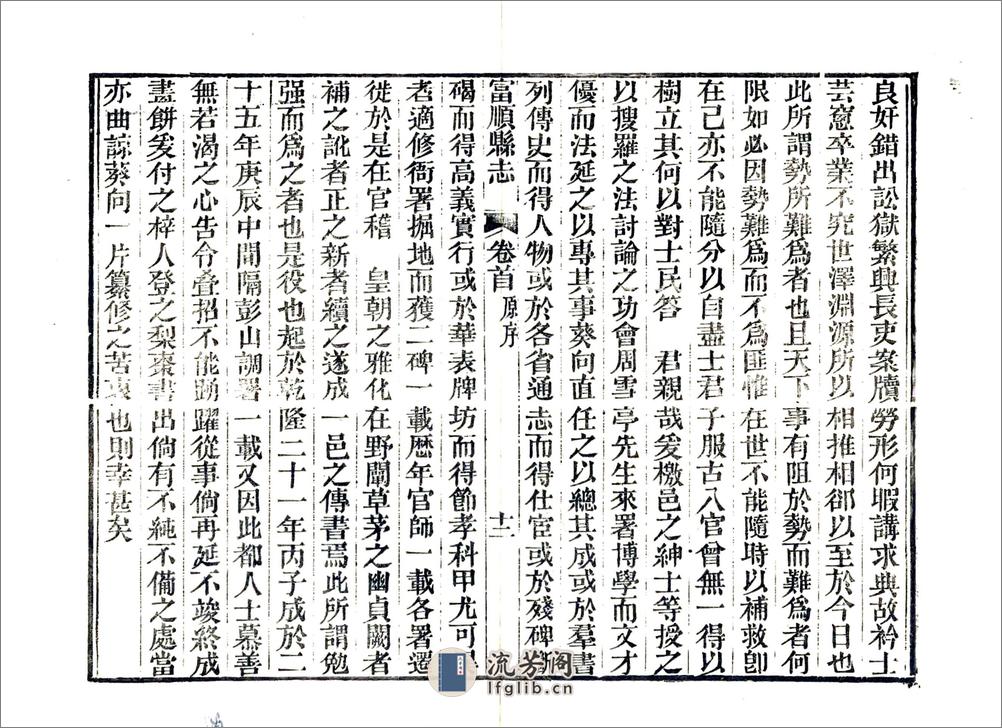 良奸錯出訟獄繁興長吏案牘勞形何暇講求典故衿士
芸窻卒業不究世澤淵源所以相推相郤以至於今日也
此所謂勢所難爲者也且天下事有阻於勢而難爲者何
限如必因勢難爲而不爲匪惟在世不能隨時以補救卽
在己亦不能隨分以自盡士君子服古入官曾無一得以
樹立其何以對士民答 君親哉爰檄邑之紳士等授之
以搜羅之法討論之功會周雪亭先生來署博學而文才
優而法延之以專其事葵向直任之以總其成或於羣書
列傳史而得人物或於各省通志而得仕宦或於殘碑斷
富順縣志 卷首 原序 十二
碣而得高義實行或於華表牌坊而得節孝科甲尤可
者適修衙署掘地而獲二碑一載歷年官師一載各署遷
徙於是在官稽 皇朝之雅化在野闡草茅之幽貞闕者
補之訛者正之新者續之遂成一邑之傳書焉此所謂勉
强而爲之者也是役也起於乾隆二十一年丙子成於二
十五年庚辰中間隔彭山調署一載又因此都人士慕善
無若渴之心告令叠招不能踴躍從事倘再延不竣終成
畫餅爰付之梓人登之梨棗書出倘有不純不備之處當
亦曲諒葵向一片纂修之苦衷也則幸甚矣
流芳閣
lfglib.cn